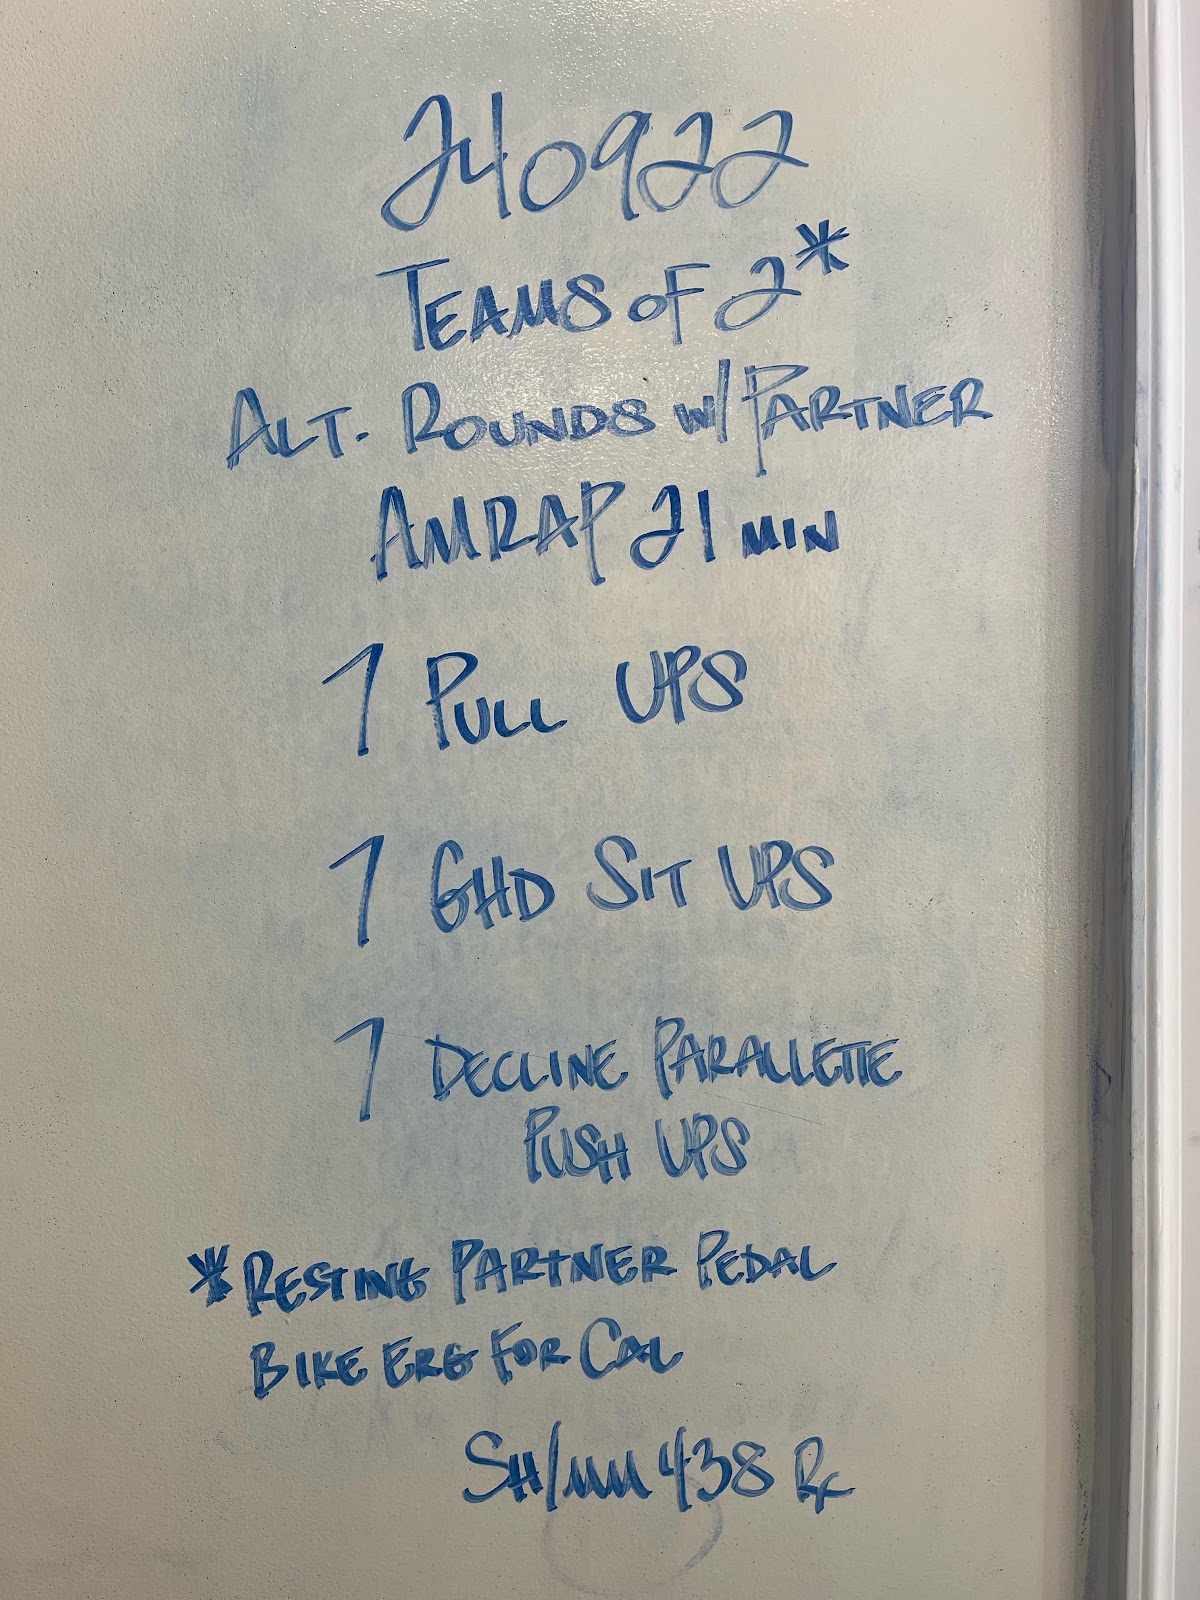 240922
TEAMS OF 2*
ALT. ROUNDS W/ PARTNER
AMRAP 21 MIN
7 PULL UPS
7 GHD SIT UPS
7 DECLINE PARALLETTE
PUSH UPS
*RESTING PARTNER PEDAL
BIKE ERG FOR CAL
SH/MM 438 Rx